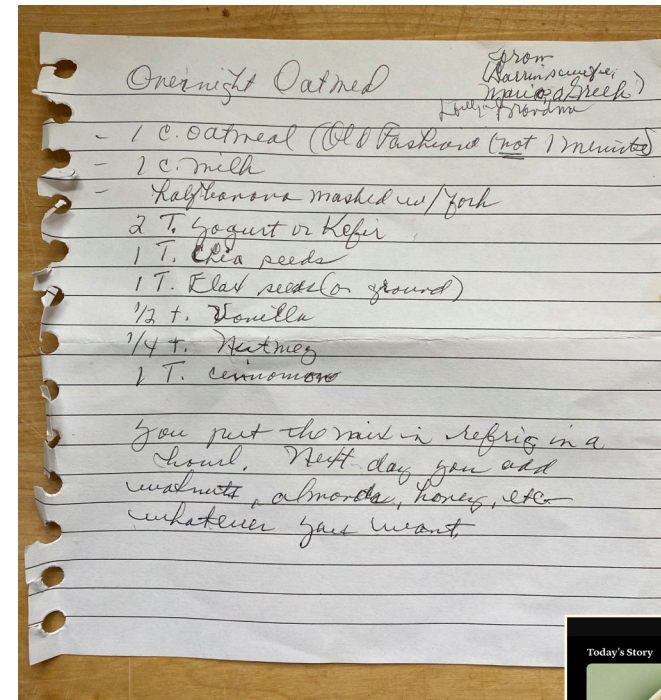 Overnight Oatmeal
From
(Darrin's wife,
Maria, a Greek)
Grandma
- 1 c. oatmeal (Old Fashioned (not 1 minute)
- 1 c. milk
- half banana mashed w/ fork
2 T. yogurt or Kefir
1 T. Chia seeds
1 T. Flax seeds (or ground)
1/2 t. Vanilla
1/4 t. Nutmeg
1 T. cinnamon
You put the mix in refrig in a
bowl. Next day you add
walnuts, almonds, honey, etc -
whatever you want.
Today's Story